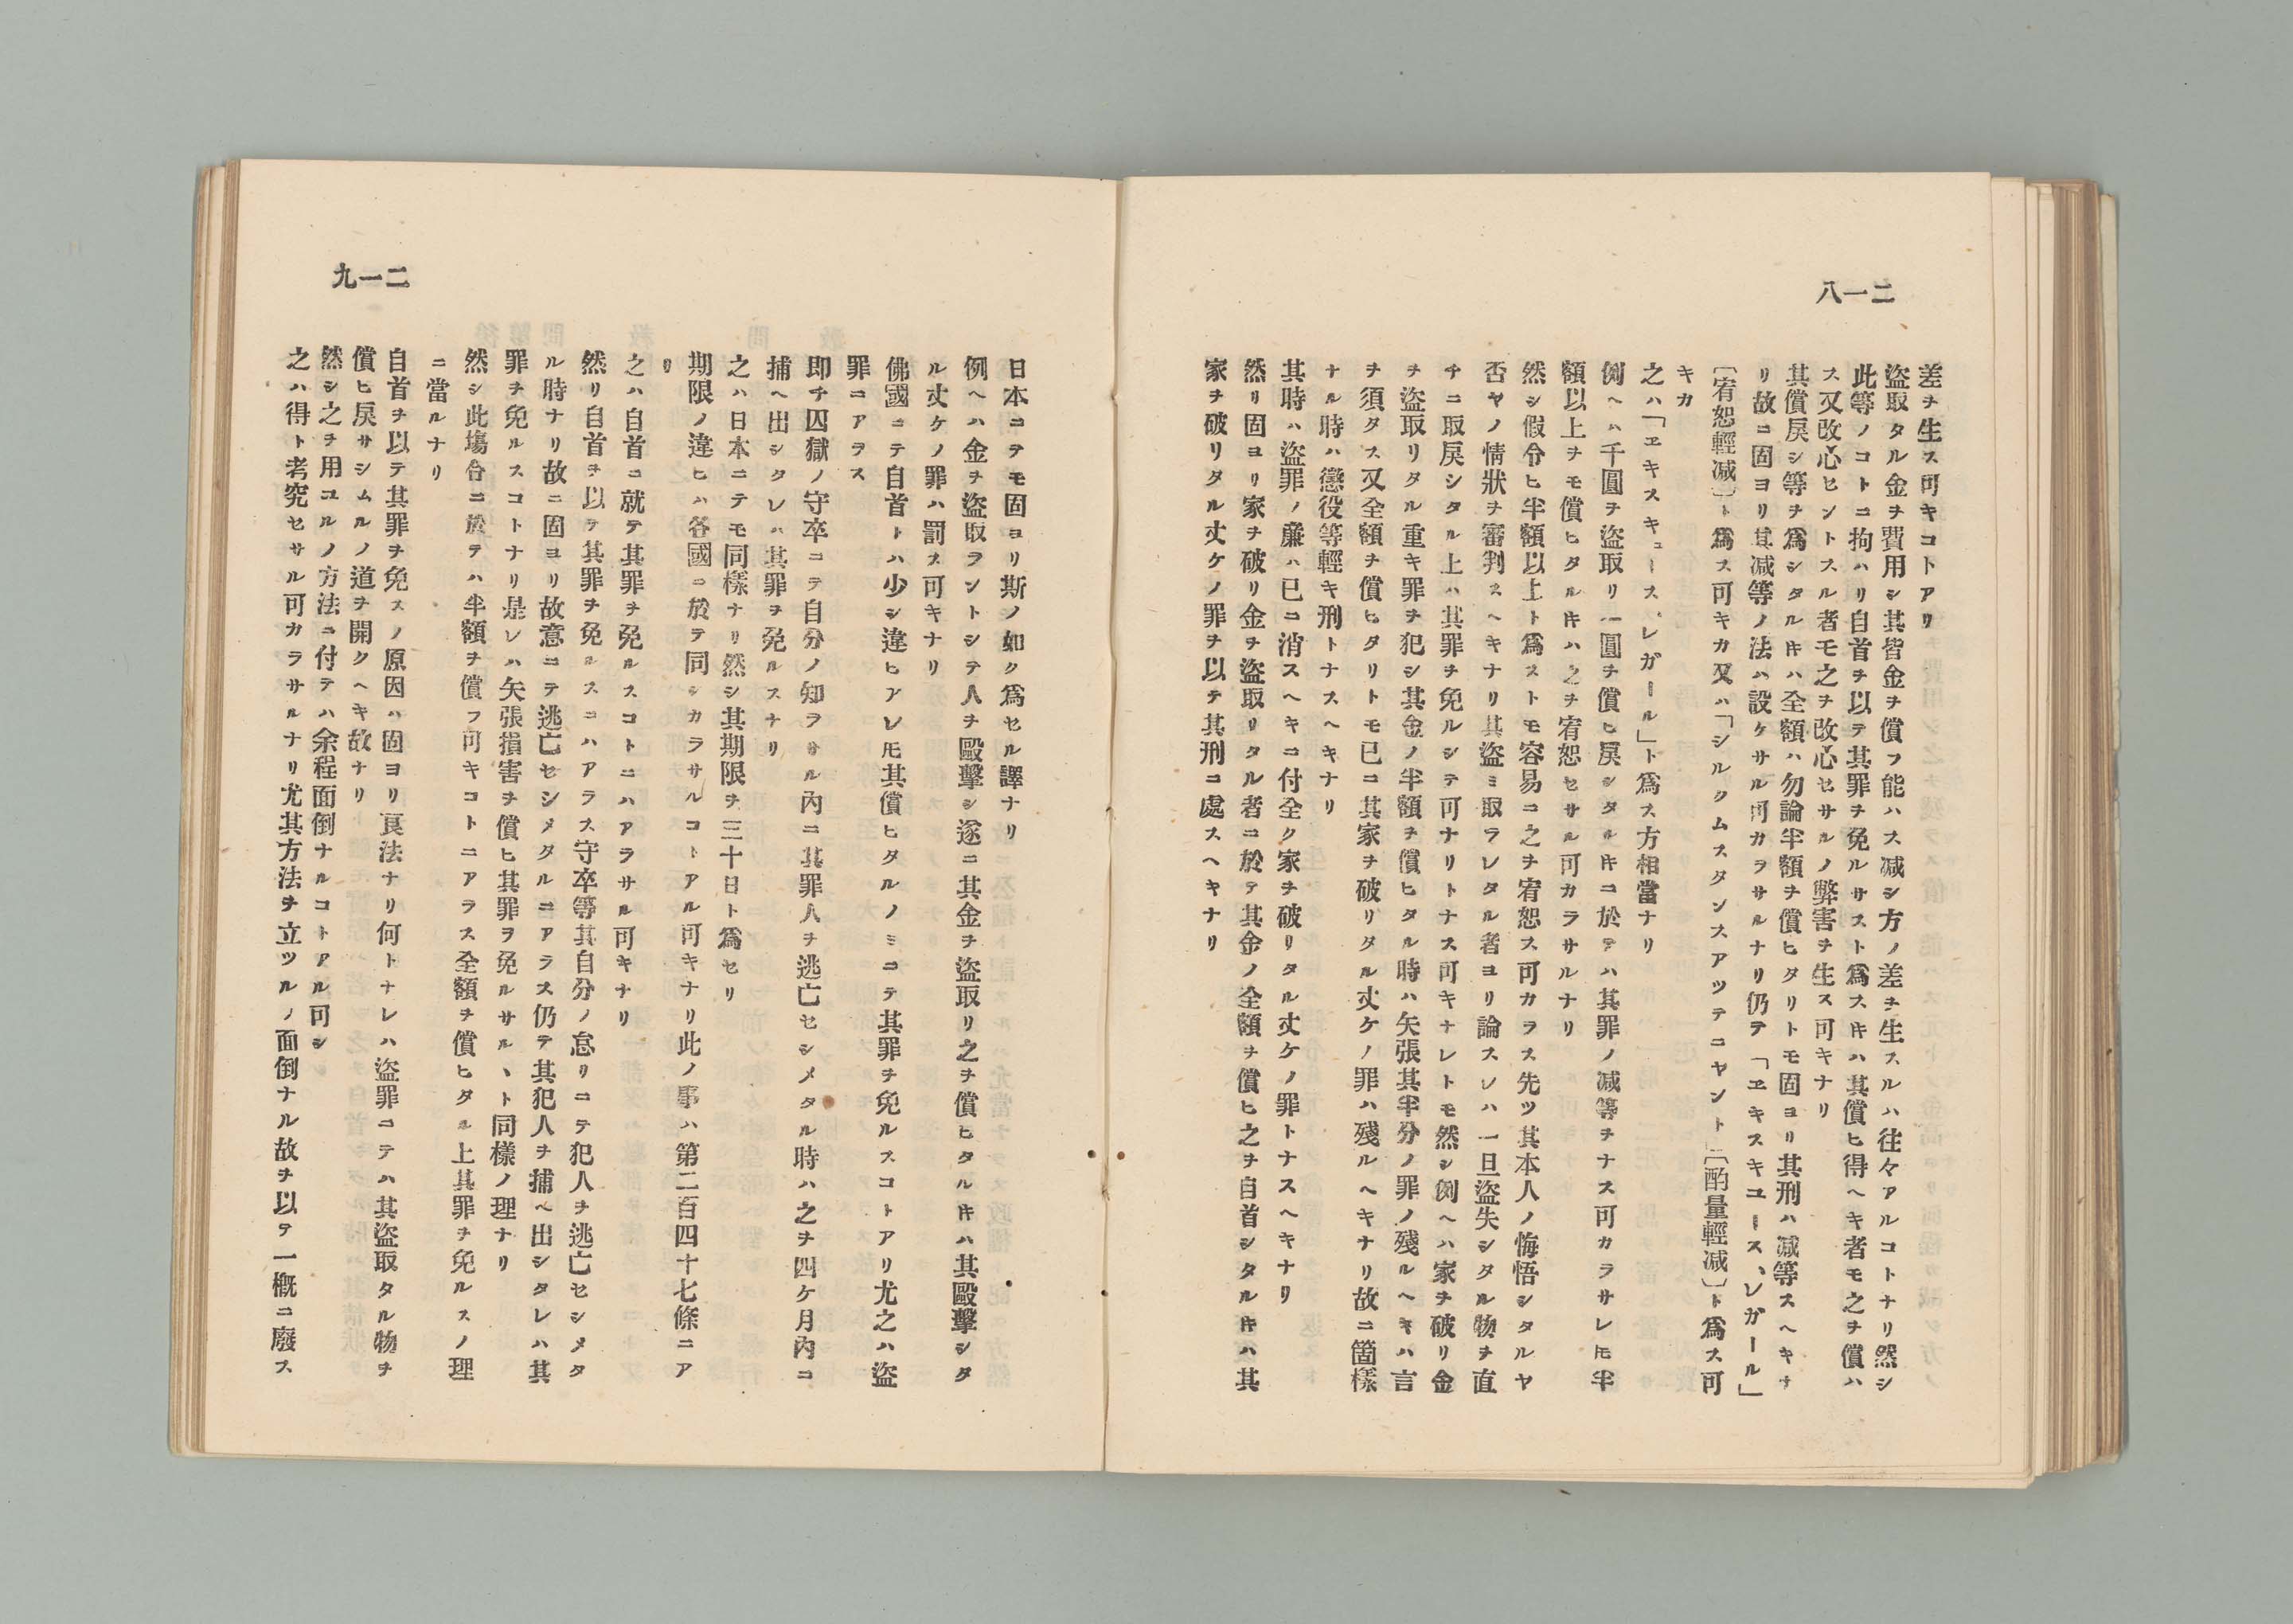 二一八
差ヲ生ス可キコトアリ
盜取タル金ヲ費用シ其皆金ヲ償フ能ハス减シ方ノ差ヲ生スルハ往々アルコトナリ然シ
此等ノコトニ拘ハリ自首ヲ以テ其罪ヲ免ルサスト爲スキハ其償ヒ得ヘキ者モ之ヲ償ハ
ス又改心セントスル者モ之ヲ改心セサルノ弊害ヲ生ス可キナリ
其償戻シ等ヲ爲シタルキハ全額ハ勿論半額ヲ償ヒタリトモ固ヨリ其刑ハ减等スヘキナ
リ故ニ固ヨリ其减等ノ法ハ設ケサル可カラサルナリ仍テ「ヱキスキユース、レガール」
〔宥恕輕减〕ト爲ス可キカ又ハ「シルクムスタンスアツテニヤント」〔酌量輕减〕ト爲ス可
キカ
之ハ「ヱキスキュース、レガール」ト爲ス方相當ナリ
例ヘハ千圓ヲ盜取リ一圓ヲ償ヒ戻シタルキニ於テハ其罪ノ减等ヲナス可カラサレ𪜈半
額以上ヲモ償ヒタルキハ之ヲ宥恕セサル可カラサルナリ
然シ假令ヒ半額以上ト爲ストモ容易ニ之ヲ宥恕ス可カラス先ツ其本人ノ悔悟シタルヤ
否ヤノ情狀ヲ審判スヘキナリ其盜ミ取ラレタル者ヨリ論スレハ一旦盜失シタル物ヲ直
チニ取戻シタル上ハ其罪ヲ免ルシテ可ナリトナス可キナレトモ然シ例ヘハ家ヲ破リ金
ヲ盜取リタル重キ罪ヲ犯シ其金ノ半額ヲ償ヒタル時ハ矢張其半分ノ罪ノ殘ルヘキハ言
ヲ須タス又全額ヲ償ヒタリトモ已ニ其家ヲ破リタル丈ケノ罪ハ殘ルヘキナリ故ニ箇樣
ナル時ハ懲役等輕キ刑トナスヘキナリ
其時ハ盜罪ノ廉ハ已ニ消スヘキニ付全ク家ヲ破リタル丈ケノ罪トナスヘキナリ
然リ固ヨリ家ヲ破リ金ヲ盜取リタル者ニ於テ其金ノ全額ヲ償ヒ之ヲ自首シタルキハ其
家ヲ破リタル丈ケノ罪ヲ以テ其刑ニ處スヘキナリ
二一九
日本ニテモ固ヨリ斯ノ如ク爲セル譯ナリ
例ヘハ金ヲ盜取ラントシテ人ヲ毆擊シ遂ニ其金ヲ盜取リ之ヲ償ヒタルキハ其毆擊シタ
ル丈ケノ罪ハ罰ス可キナリ
佛國ニテ自首トハ少シ違ヒアレ𪜈其償ヒタルノミニテ其罪ヲ免ルスコトアリ尤之ハ盜
罪ニアラス
即チ囚獄ノ守卒ニテ自分ノ知ラサル內ニ其罪人ヲ逃亡セシメタル時ハ之ヲ四ケ月內ニ
捕ヘ出シタレハ其罪ヲ免ルスナリ
之ハ日本ニテモ同樣ナリ然シ其期限ヲ三十日ト爲セリ
期限ノ違ヒハ各國ニ於テ同シカラサルコトアル可キナリ此ノ事ハ第二百四十七條ニア
リ
之ハ自首ニ就テ其罪ヲ免ルスコトニハアラサル可キナリ
然リ自首ヲ以テ其罪ヲ免ルスニハアラス守卒等其自分ノ怠リニテ犯人ヲ逃亡セシメタ
ル時ナリ故ニ固ヨリ故意ニテ逃亡セシメタルニアラス仍テ其犯人ヲ捕ヘ出シタレハ其
罪ヲ免ルスコトナリ是レハ矢張損害ヲ償ヒ其罪ヲ免ルサル、ト同樣ノ理ナリ
然シ此塲合ニ於テハ半額ヲ償フ可キコトニアラス全額ヲ償ヒタル上其罪ヲ免ルスノ理
ニ當ルナリ
自首ヲ以テ其罪ヲ免スノ原因ハ固ヨリ良法ナリ何トナレハ盜罪ニテハ其盜取タル物ヲ
償ヒ戻サシムルノ道ヲ開クヘキ故ナリ
然シ之ヲ用ユルノ方法ニ付テハ余程面倒ナルコトアル可シ
之ハ得ト考究セサル可カラサルナリ尤其方法ヲ立ツルノ面倒ナル故ヲ以テ一槪ニ廢ス